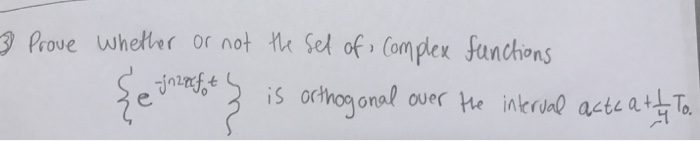 ③ Prove whether or not the set of, Complex functions
{e^{-jn2πf₀t}} is orthogonal over the interval a<t<a+1/4 T₀.